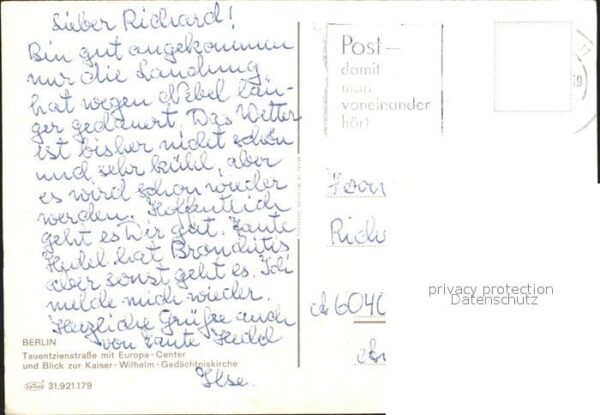 Lieber Richard!
Bin gut angekommen
nur die Landung
hat wegen Nebel län-
ger gedauert. Das Wetter
ist bisher nicht schön
und sehr kühl, aber
es wird schon wieder
werden. Hoffentlich
geht es Dir gut. Tante
Hedel hat Bronchitis
aber sonst geht es. Ich
melde mich wieder.
Herzliche Grüße auch
von Tante Hedel
Ilse.
BERLIN
Tauentzienstraße mit Europa-Center
und Blick zur Kaiser-Wilhelm-Gedächtniskirche
31.921.179
Post –
damit
man
voneinander
hört
19
Herrn
Rich
6040
privacy protection
Datenschutz